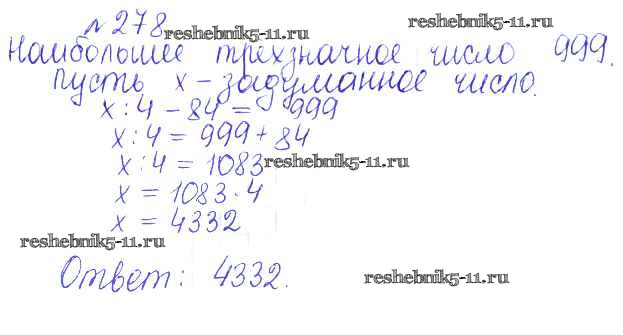 №278 reshebnik5-11.ru reshebnik5-11.ru
Наибольшее трехзначное число 999.
Пусть x – задуманное число.
x : 4 – 84 = 999
x : 4 = 999 + 84
x : 4 = 1083 reshebnik5-11.ru
x = 1083 · 4
x = 4332
reshebnik5-11.ru
Ответ: 4332. reshebnik5-11.ru